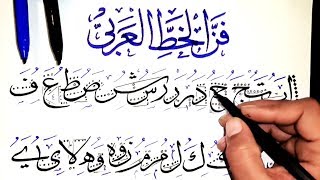 فن الخط العربي
ا ب ت ج ح د ر ر س ش ص ط ع ف
ك ل م م ز و ه و ه لا ي ي